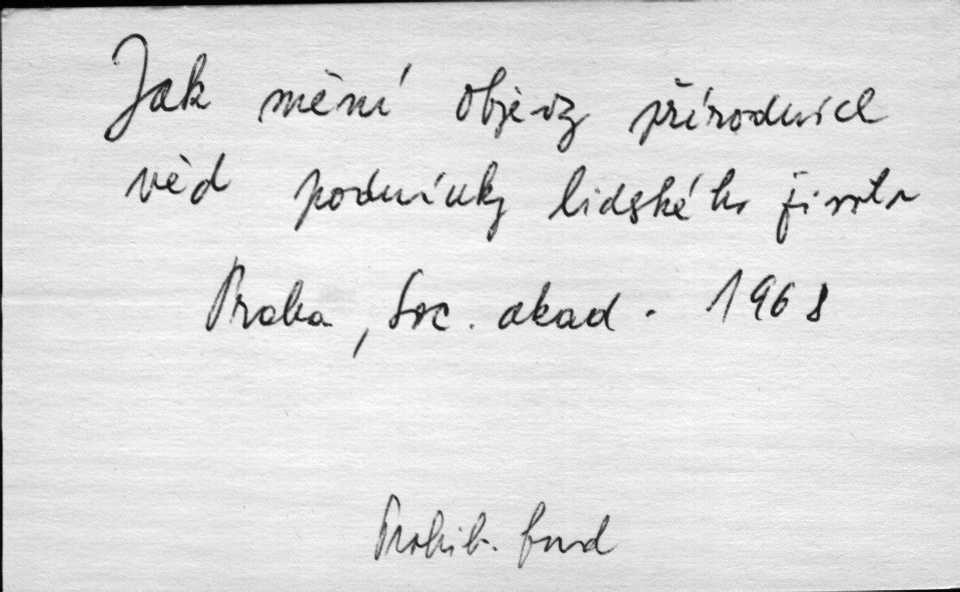 Jak mění objevy přírodních
věd podmínky lidského života
Praha, Soc. akad. 1968
Prohib. fond